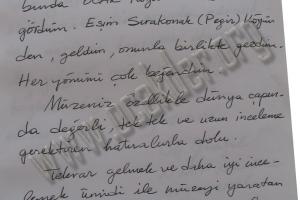 gördüm. Eşim Sırakonak (Peçir) Köyün
den, geldim, onunla birlikte gezdim.
Her yönünü çok beğendim.
Müzeniz özellikle dünya çapın-
da değerli, tek tek ve uzun inceleme
gerektiren hatıralarla dolu.
Tekrar gelmek ve daha iyi ince-
lemek ümidi ile müzeyi yaratan